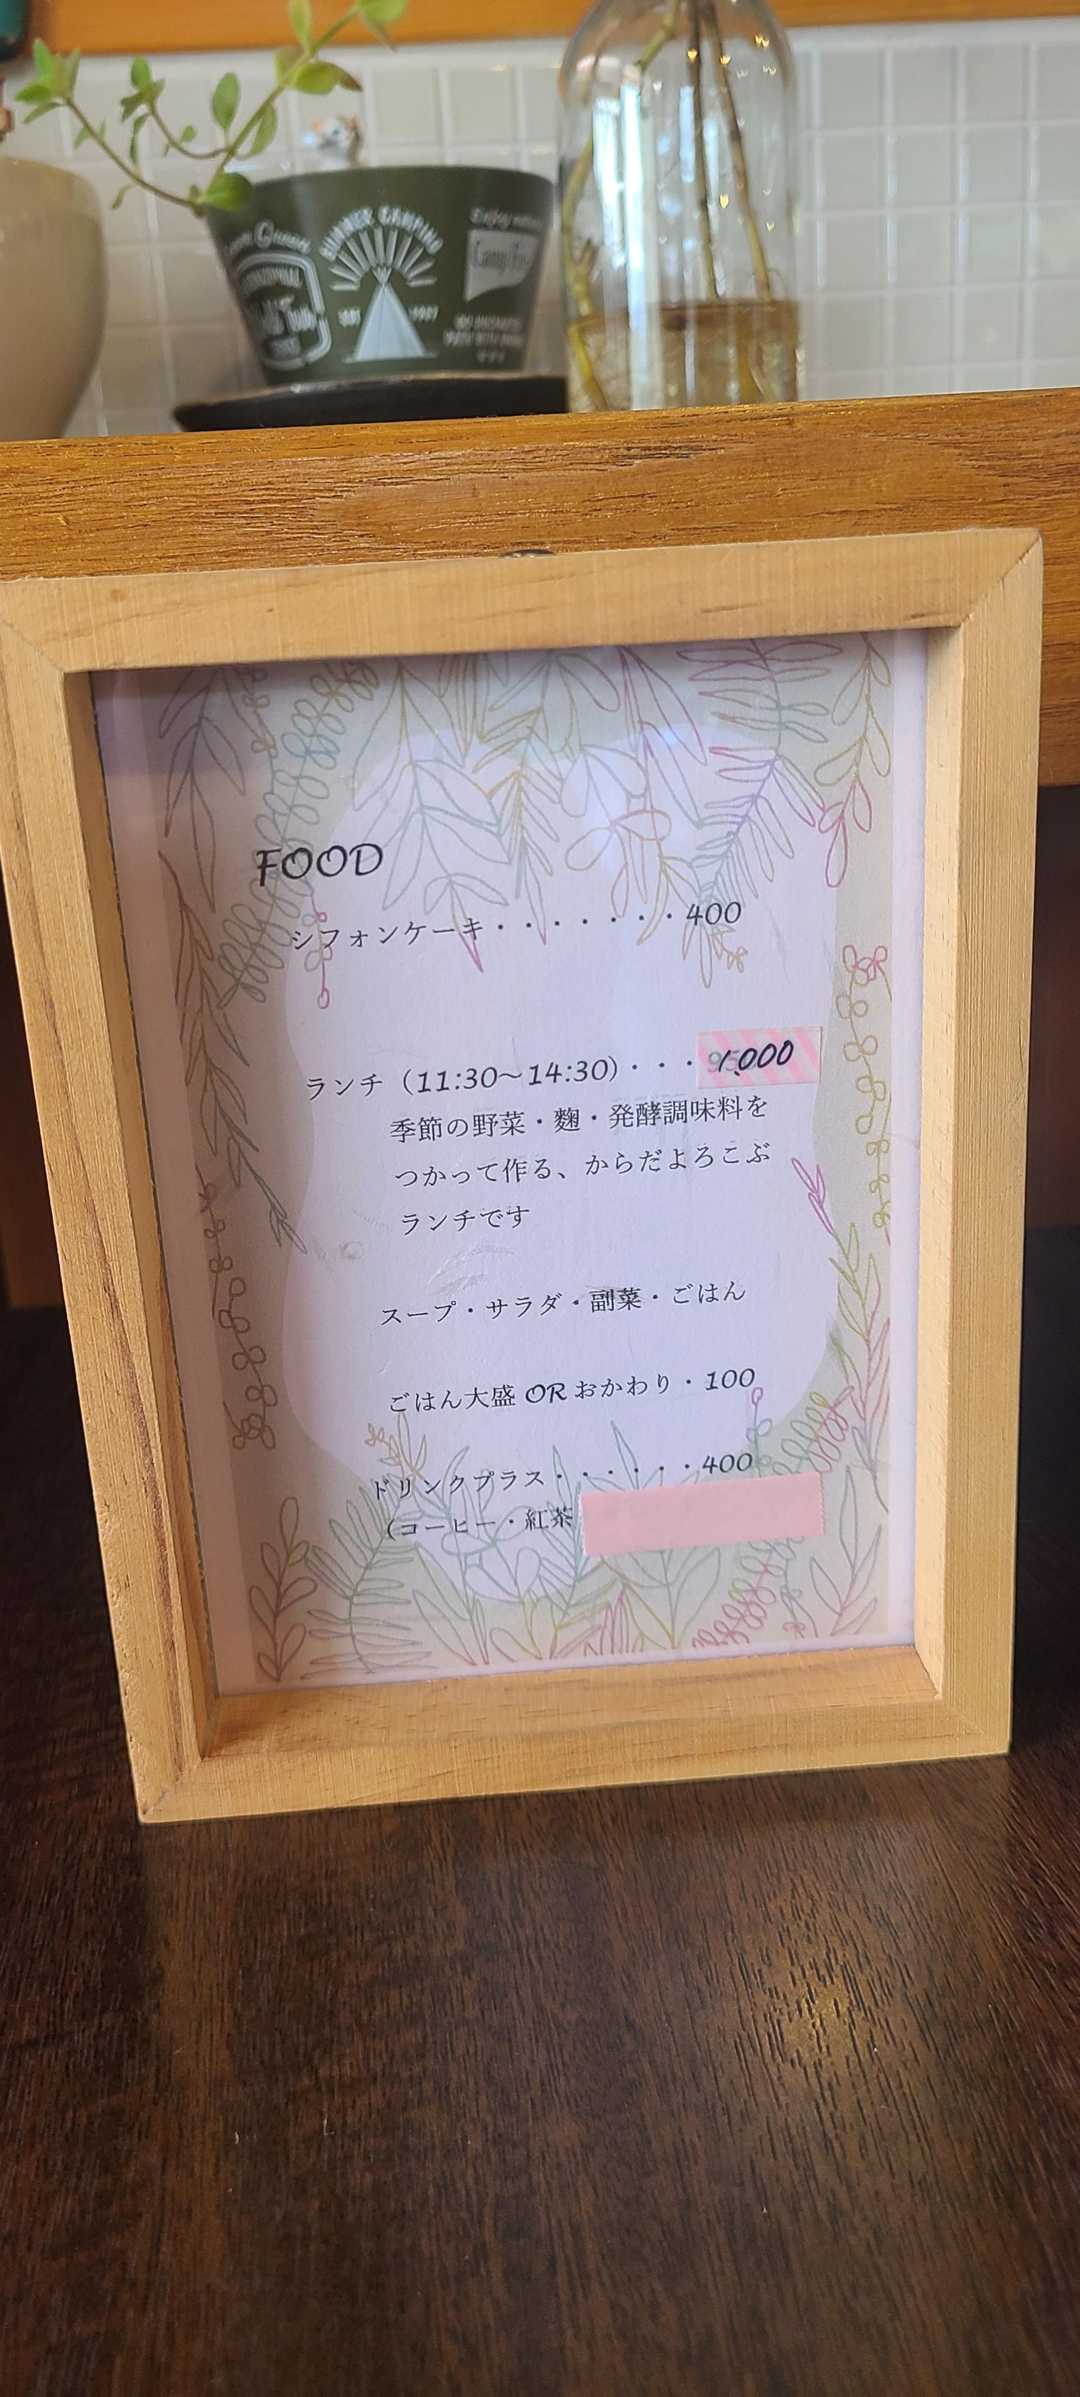 SUMMER CAMPING
FOOD
シフォンケーキ・・・・・・・400
ランチ（11:30～14:30）・・・1,000
季節の野菜・麹・発酵調味料を
つかって作る、からだよろこぶ
ランチです
スープ・サラダ・副菜・ごはん
ごはん大盛 OR おかわり・100
ドリンクプラス・・・・・・400
（コーヒー・紅茶